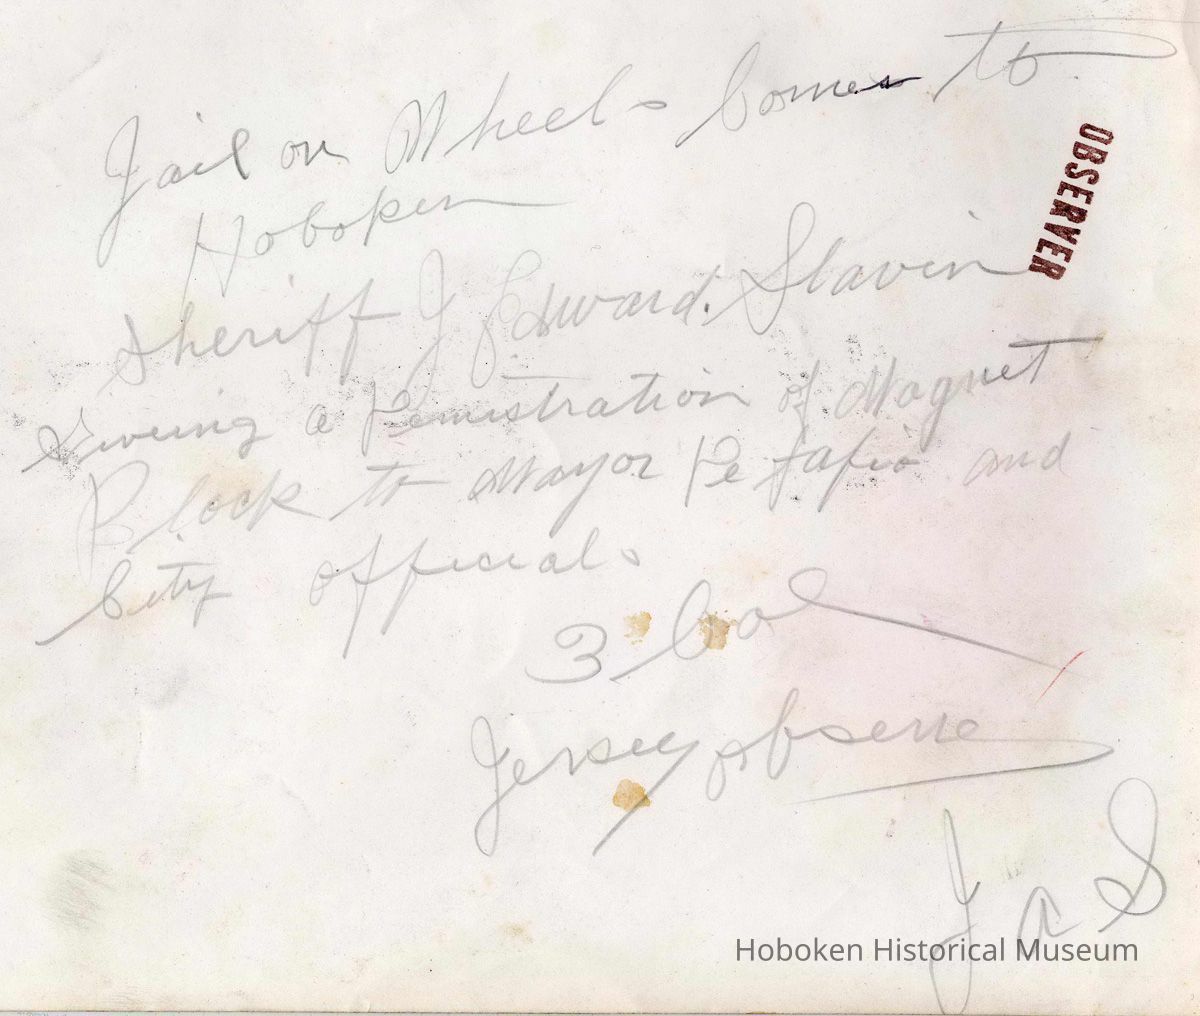 Jail on Wheels Comes to
Hoboken
Sheriff J Edward. Slavin
Giveing a Demistration of Magnet
Block to Mayor De Fapio and
City officials
3 Col
Jersey Observe
J a S
OBSERVER
Hoboken Historical Museum